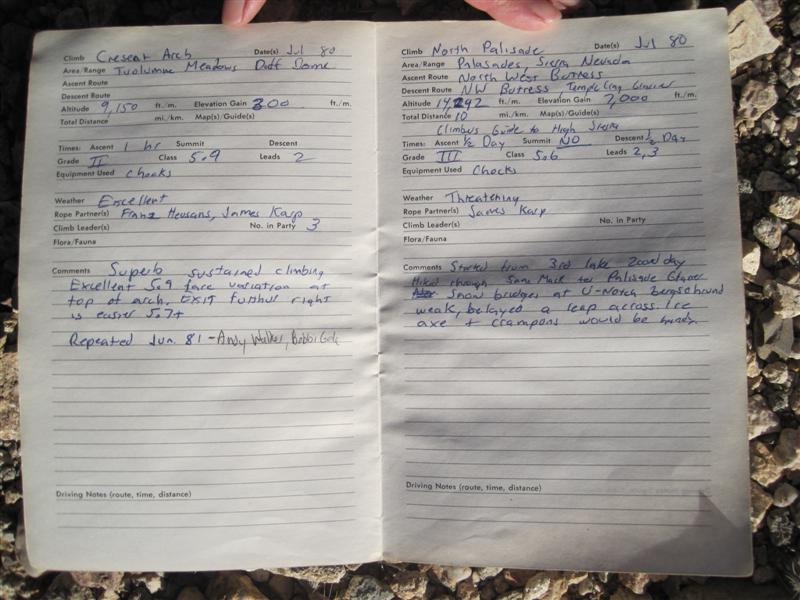 Climb Cresent Arch Date(s) Jul 80
Area/Range Tuolumne Meadows Daff Dome
Ascent Route
Descent Route
Altitude 9,150 ft./m. Elevation Gain 300 ft./m.
Total Distance mi./km. Map(s)/Guide(s)
Times: Ascent 1 hr Summit Descent
Grade II Class 5.9 Leads 2
Equipment Used chocks
Weather Excellent
Rope Partner(s) Franz James Karp
Climb Leader(s) No. in Party 3
Flora/Fauna
Comments Superb sustained climbing
Excellent 5.9 face variation at
top of arch. Exit further right
is easier 5.7+
Repeated Jun. 81 - Andy Walker, Bobbi
Driving Notes (route, time, distance)
Climb North Palisade Date(s) Jul 80
Area/Range Palasades, Sierra Nevada
Ascent Route North West Butress
Descent Route NW Butress
Altitude 14,242 ft./m. Elevation Gain 2,000 ft./m.
Total Distance 10 mi./km. Map(s)/Guide(s)
Climbers Guide to High Sierra
Times: Ascent 1/2 Day Summit NO Descent 1/2 Day
Grade III Class 5.6 Leads 2,3
Equipment Used Chocks
Weather Threatening
Rope Partner(s) James Karp
Climb Leader(s) No. in Party
Flora/Fauna
Comments Started from 3rd lake
Hiked through Sam Mack to Palisade
Snow bridges at U-Notch bergschrund
weak, belayed a leap across. Ice
axe + crampons would be handy.
Driving Notes (route, time, distance)